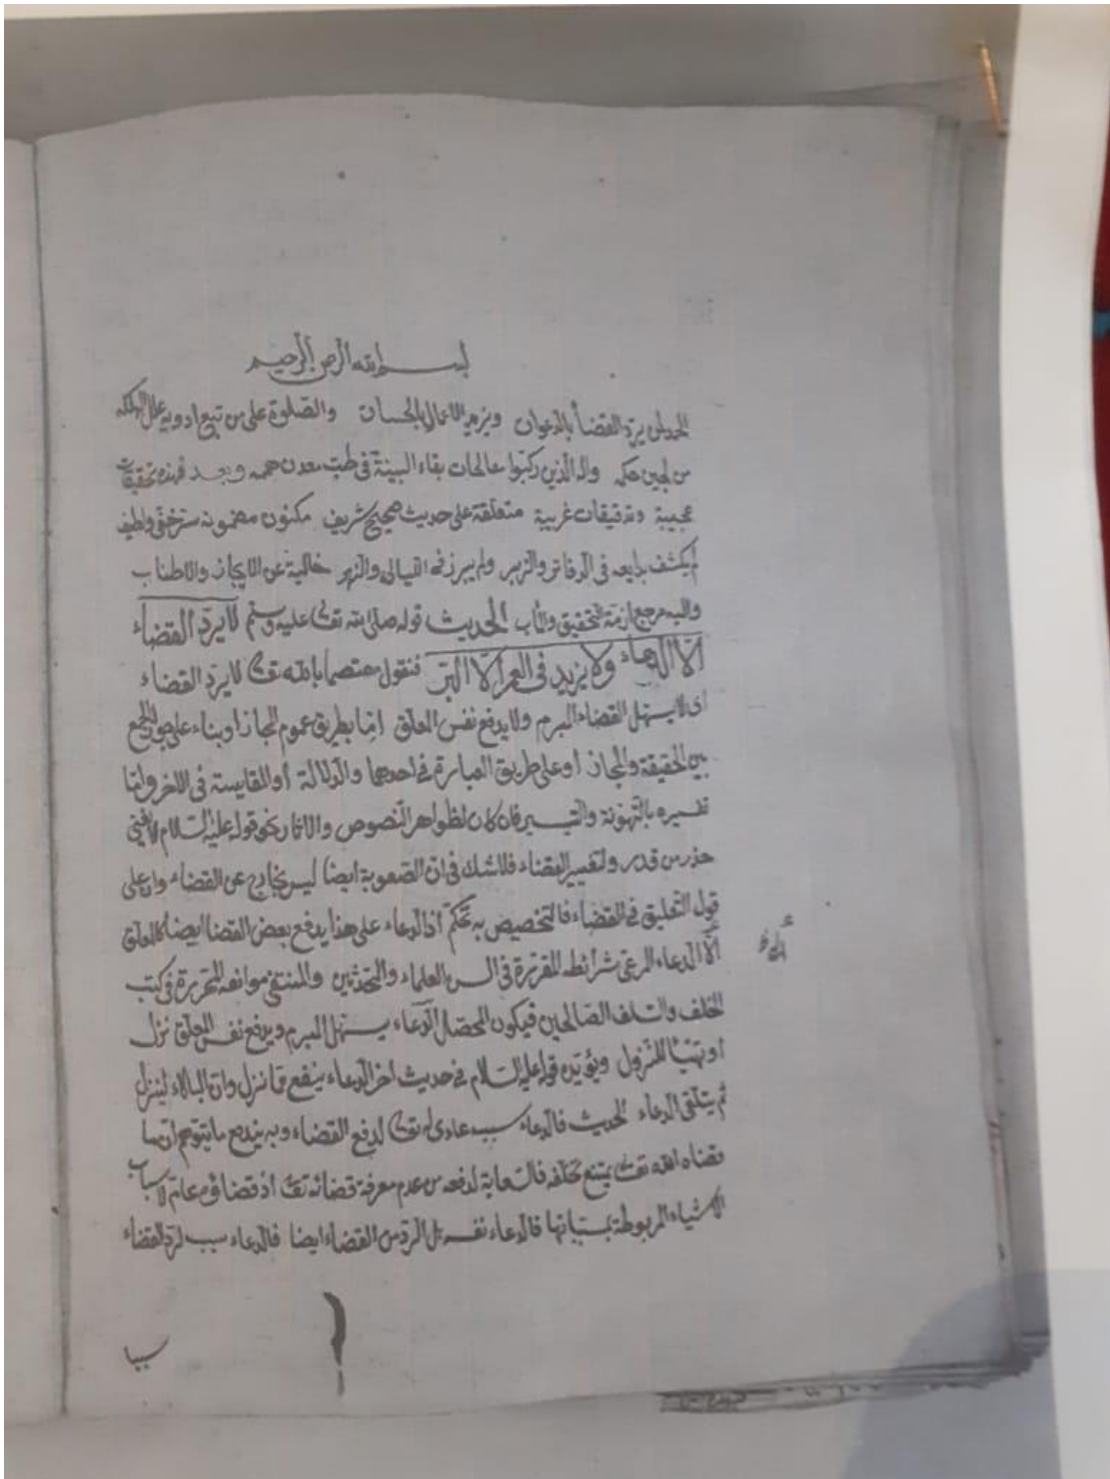 بسم الله الرحمن الرحيم
الحمد لمن يرد القضأ بالدعوان ويزيد الاعمال بالحسان والصلوة على من تتبع ادوية علل الهلكه
من لجين حكمه واله الذين ركبوا عالحات بقاء البينة فى طب معدن حممه وبعد فهذه تحقيقات
عجيبة وتدقيقات غريبة متعلقة على حديث صحيح شريف مكنون مضمونه سترخفى ولطيف
لم يكشف بدايعه فى الدفاتر والزبر ولم يبرز فى الليالى والنهر خالية عن الايجاز والاطناب
واليه مرجع ازمة التحقيق والمأب الحديث قوله صلى الله تعالى عليه وسلم لا يرد القضاء
الا الدعاء ولا يزيد فى العمر الا البر فنقول معتصما بالله تعالى لا يرد القضاء
اى لا يسهل القضاء المبرم ولا يدفع نفس المعلق اما بطريق عموم المجاز او بناء على جواز الجمع
بين الحقيقة والمجاز او على طريق العبارة فى احدهما والدلالة أو المقايسة فى الاخر وانما
تفسيره بالتهونة والتيسير فان كان لظواهر النصوص والاثار نحو قوله عليه السلام لا يغنى
حذر من قدر ولتفسير القضاء فلا شك فى ان الصعوبة ايضا ليس بخارج عن القضاء وان على
قول التعليق فى القضاء فالتخصيص به تحكم اذ الدعاء على هذا يدفع بعض القضا ايضا كالمعلق
الا الدعاء المرعى شرائطه المقررة فى السن العلماء والمحدثين والمنتفى موانعه المحررة فى كتب
الخلف والسلف الصالحين فيكون المحصل الدعاء يسهل المبرم ويدفع نفس المعلق نزل
او تهيأ للنزول ويؤيده قوله عليه السلام فى حديث اخر الدعاء ينفع مما نزل وان البلاء لينزل
ثم يتلقى الدعاء الحديث فالدعاء سبب عادى له تعالى لدفع القضاء وبه يندفع ما يتوهم ان ما
قضاه الله تعالى يمتنع تخلفه فالسعاية لدفعه من عدم معرفة قضائه تعالى اذ قضاؤه عامة لاسباب
الاشياء المربوطة بمسبباتها فالدعاء نفسه بل الرد من القضاء ايضا فالدعاء سبب لرد القضاء
سببا